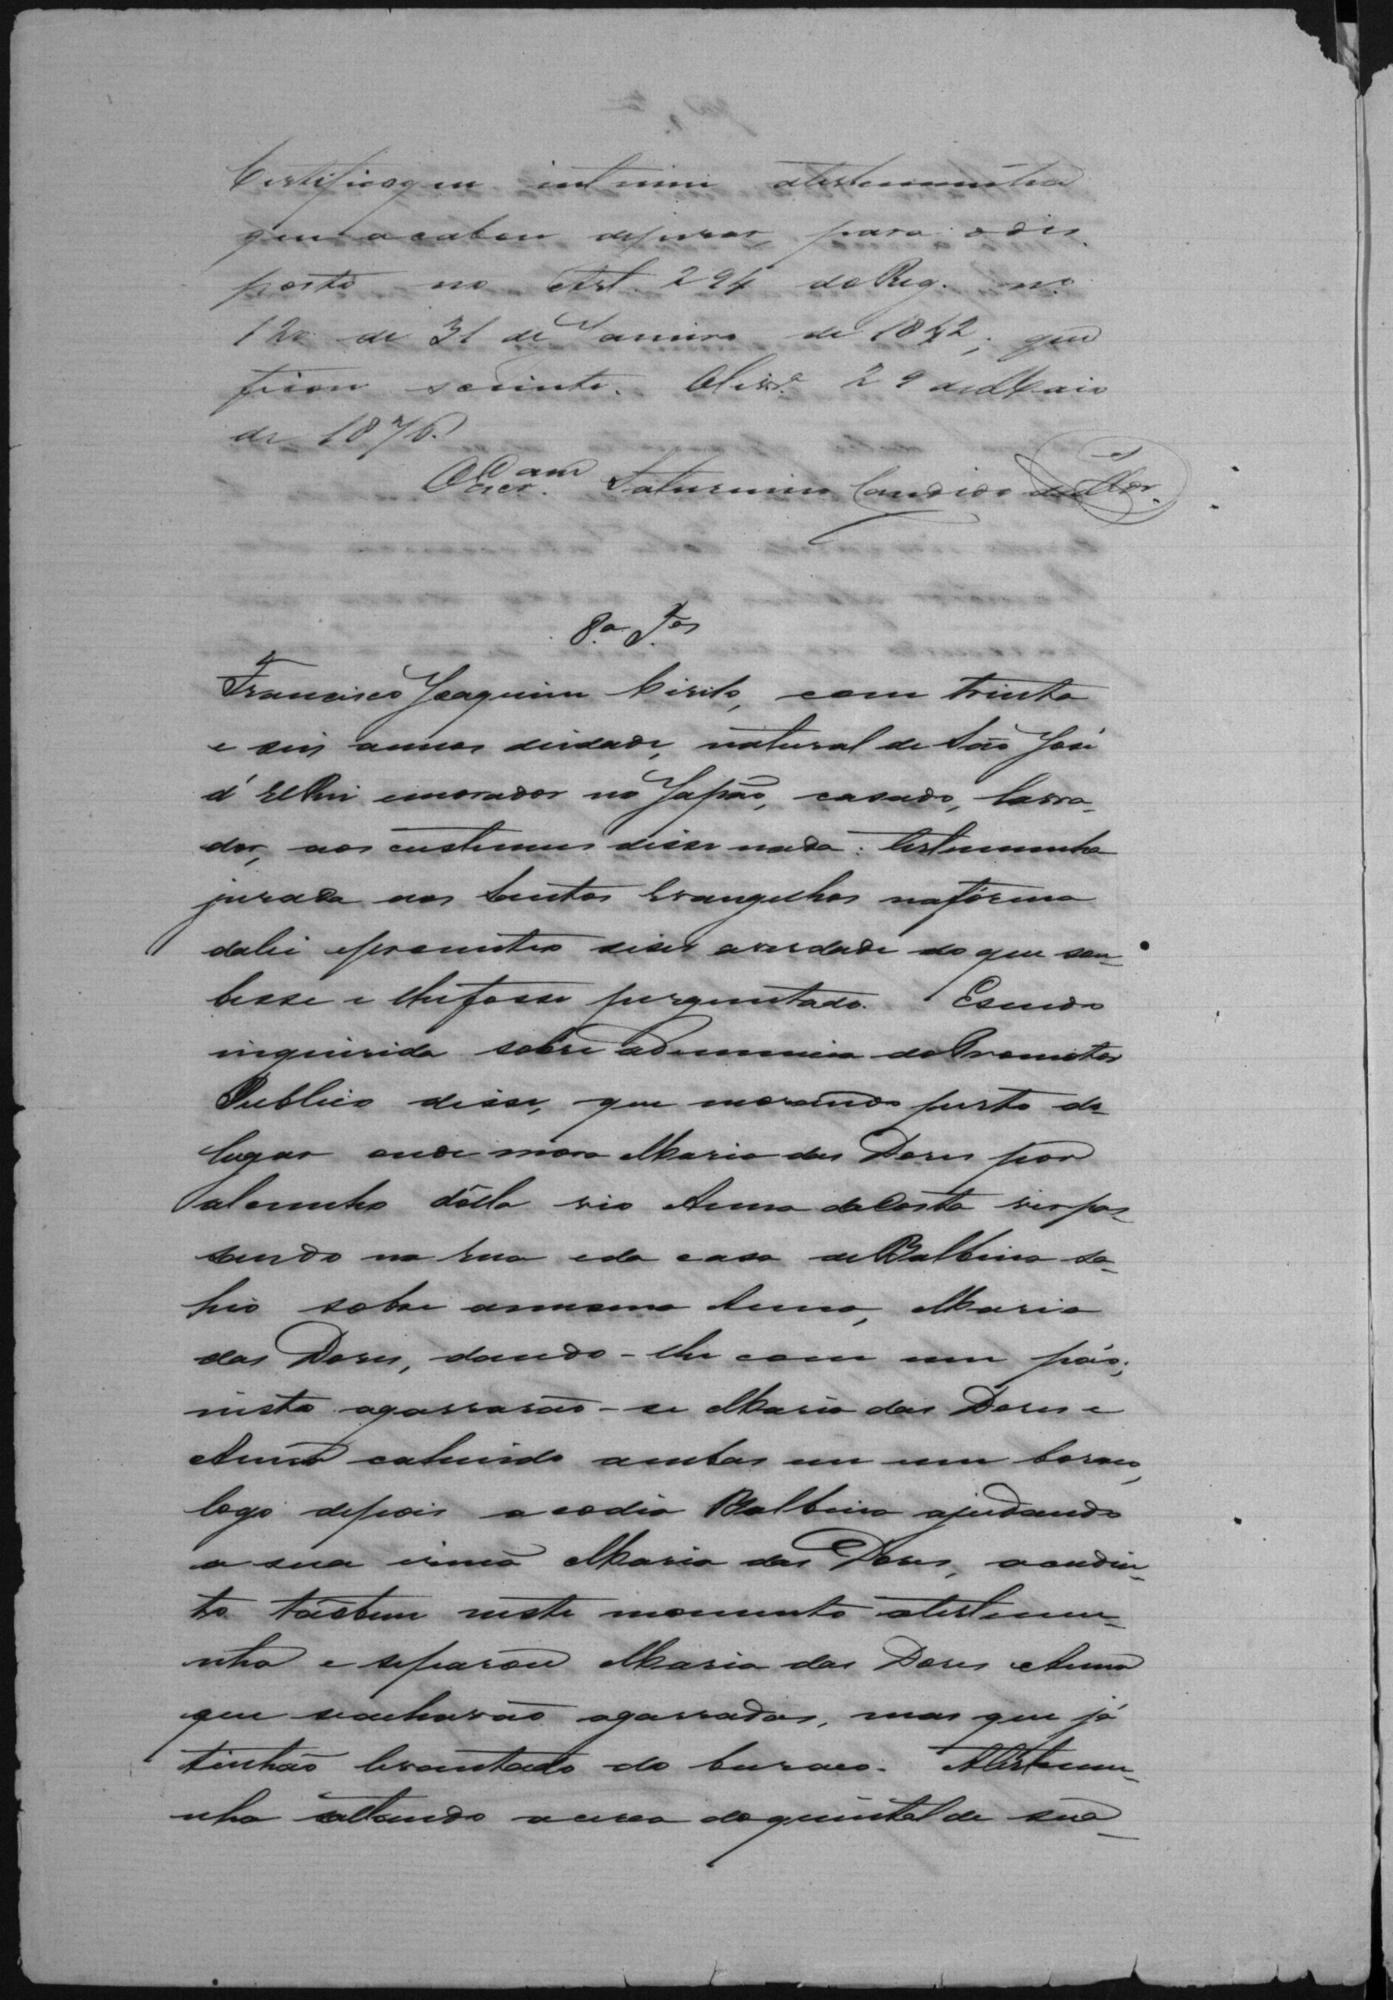 Certifico que intimei atestemunha
que acabou depor, para odis-
posto no Art. 294 do Reg. nº
120 de 31 de Janeiro de 1842; que
ficou sciente. Olivrª 29 de Maio
de 1876.
OEscr.am Saturnino Candido
8.ª T.es
Francisco Joaquim Cirilo, com trinta
e seis annos deidade, natural de São José
d'ElRei emorador no Japão, casado, lavra-
dor, aos custumes disse nada: testemunha
jurada aos Santos Evangelhos nafórma
dalei eprometeo diser averdade do que sou-
besse e lhefosse perguntado. Esendo
inquirida sobre adenuncia do Promotor
Publico disse, que morando perto do
lugar onde mora Maria das Dores por
alcunho dólla vio Anna daCosta vir pas-
sando na rua e da casa de Balbina sa-
hio sobre amesma Anna, Maria
das Dores, dando-lhe com um páo;
nisto agarrarão-se Maria das Dores e
Anna cahindo ambas em um buraco,
logo depois acodio Balbina ajudando
a sua irmã Maria das Dores, acudin-
to tãobem neste momento atestemu-
nha e separou Maria das Dores eAnna
que seacharão agarradas, mas que já
tinhão levantado do buraco. Atestemu-
nha saltando acerca doquintal de sua